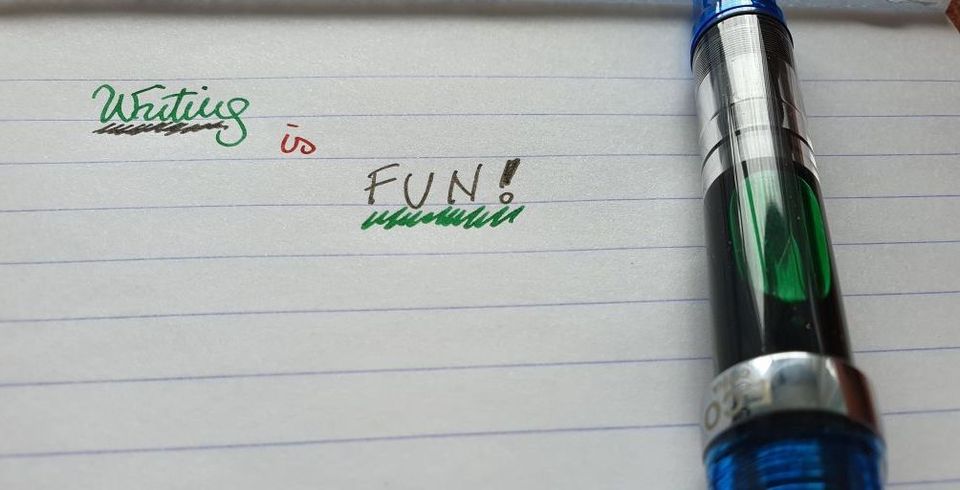 Writing
is
FUN!